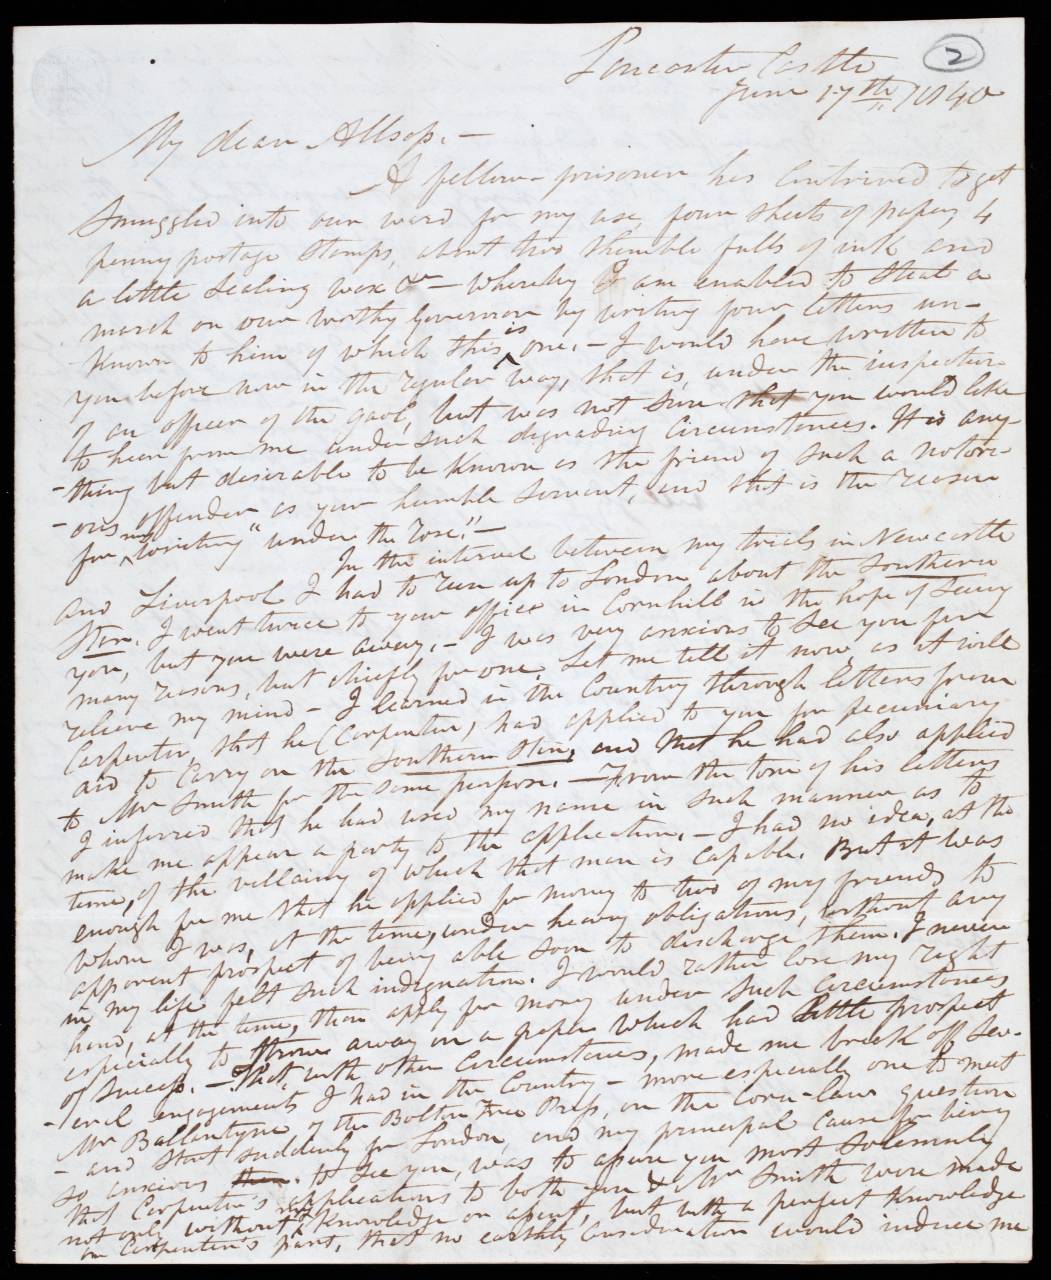 2
Lancaster Castle
June 17th 1840
My dear Allsop. —
A fellow-prisoner has contrived to get
smuggled into our ward for my use, four sheets of paper, 4
penny postage stamps, about two thimble fulls of ink and
a little sealing wax &c — whereby I am enabled to steal a
march on our worthy Governor by writing four letters un-
known to him of which this is one. — I would have written to
you before now in the regular way, that is, under the inspection
of an officer of the gaol, but was not sure that you would like
to hear from me under such degrading circumstances. It is any-
-thing but desirable to be known as the friend of such a notori-
-ous offender as your humble servant, and that is the reason
for my writing "under the rose." —
In the interval between my trials in Newcastle
and Liverpool I had to run up to London about the Southern
Star. I went twice to your office in Cornhill in the hope of seeing
you, but you were away. — I was very anxious to see you for
many reasons, but chiefly for one. Let me tell it now as it will
relieve my mind — I learned in the Country through letters from
Carpenter, that he (Carpenter) had applied to you for pecuniary
aid to carry on the Southern Star, and that he had also applied
to Mr Smith for the same purpose. — From the tone of his letters
I inferred that he had used my name in such manner as to
make me appear a party to the application. — I had no idea, at the
time, of the villainy of which that man is capable. But it was
enough for me that he applied for money to two of my friends to
whom I was, at the time, under heavy obligations, without any
apparent prospect of being able soon to discharge them. I never
in my life felt such indignation. I would rather lose my right
hand, at the time, than apply for money under such circumstances
especially to throw away on a paper which had little prospect
of success. — That, with other circumstances, made me break off sev-
-eral engagements I had in the Country — more especially one to meet
Mr Ballantyne of the Bolton Free Press, on the Corn-law question
- and start suddenly for London, and my principal cause for being
so anxious to see you, was to assure you most solemnly
that Carpenter's applications to both you & Mr Smith were made
not only without my knowledge or assent, but with a perfect knowledge
on Carpenter's part, that no earthly consideration would induce me